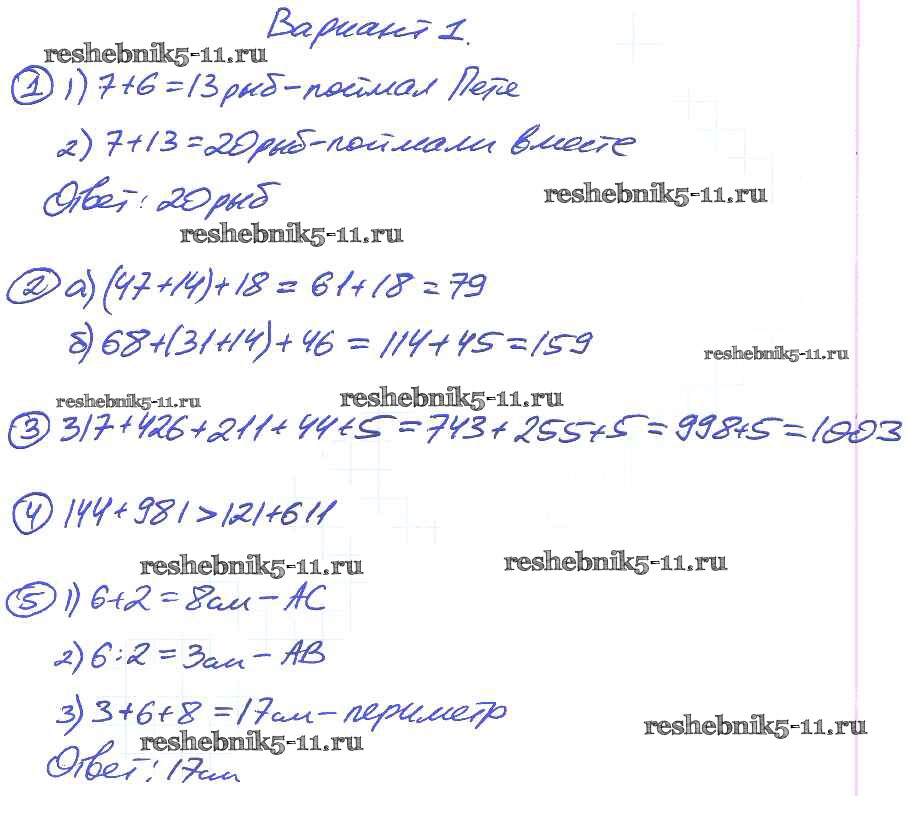 Вариант 1.
reshebnik5-11.ru
① 1) 7+6=13 рыб-поймал Петя
2) 7+13=20 рыб-поймали вместе
Ответ: 20 рыб
reshebnik5-11.ru
reshebnik5-11.ru
② а) (47+14)+18 = 61+18 = 79
б) 68+(31+14)+46 = 114+45=159
reshebnik5-11.ru
reshebnik5-11.ru
reshebnik5-11.ru
③ 317+426+211+44+5=743+255+5=998+5=1003
④ 144+981>121+611
reshebnik5-11.ru
reshebnik5-11.ru
⑤ 1) 6+2=8см-АС
2) 6:2=3см-АВ
3) 3+6+8=17см-периметр
reshebnik5-11.ru
reshebnik5-11.ru
Ответ: 17см